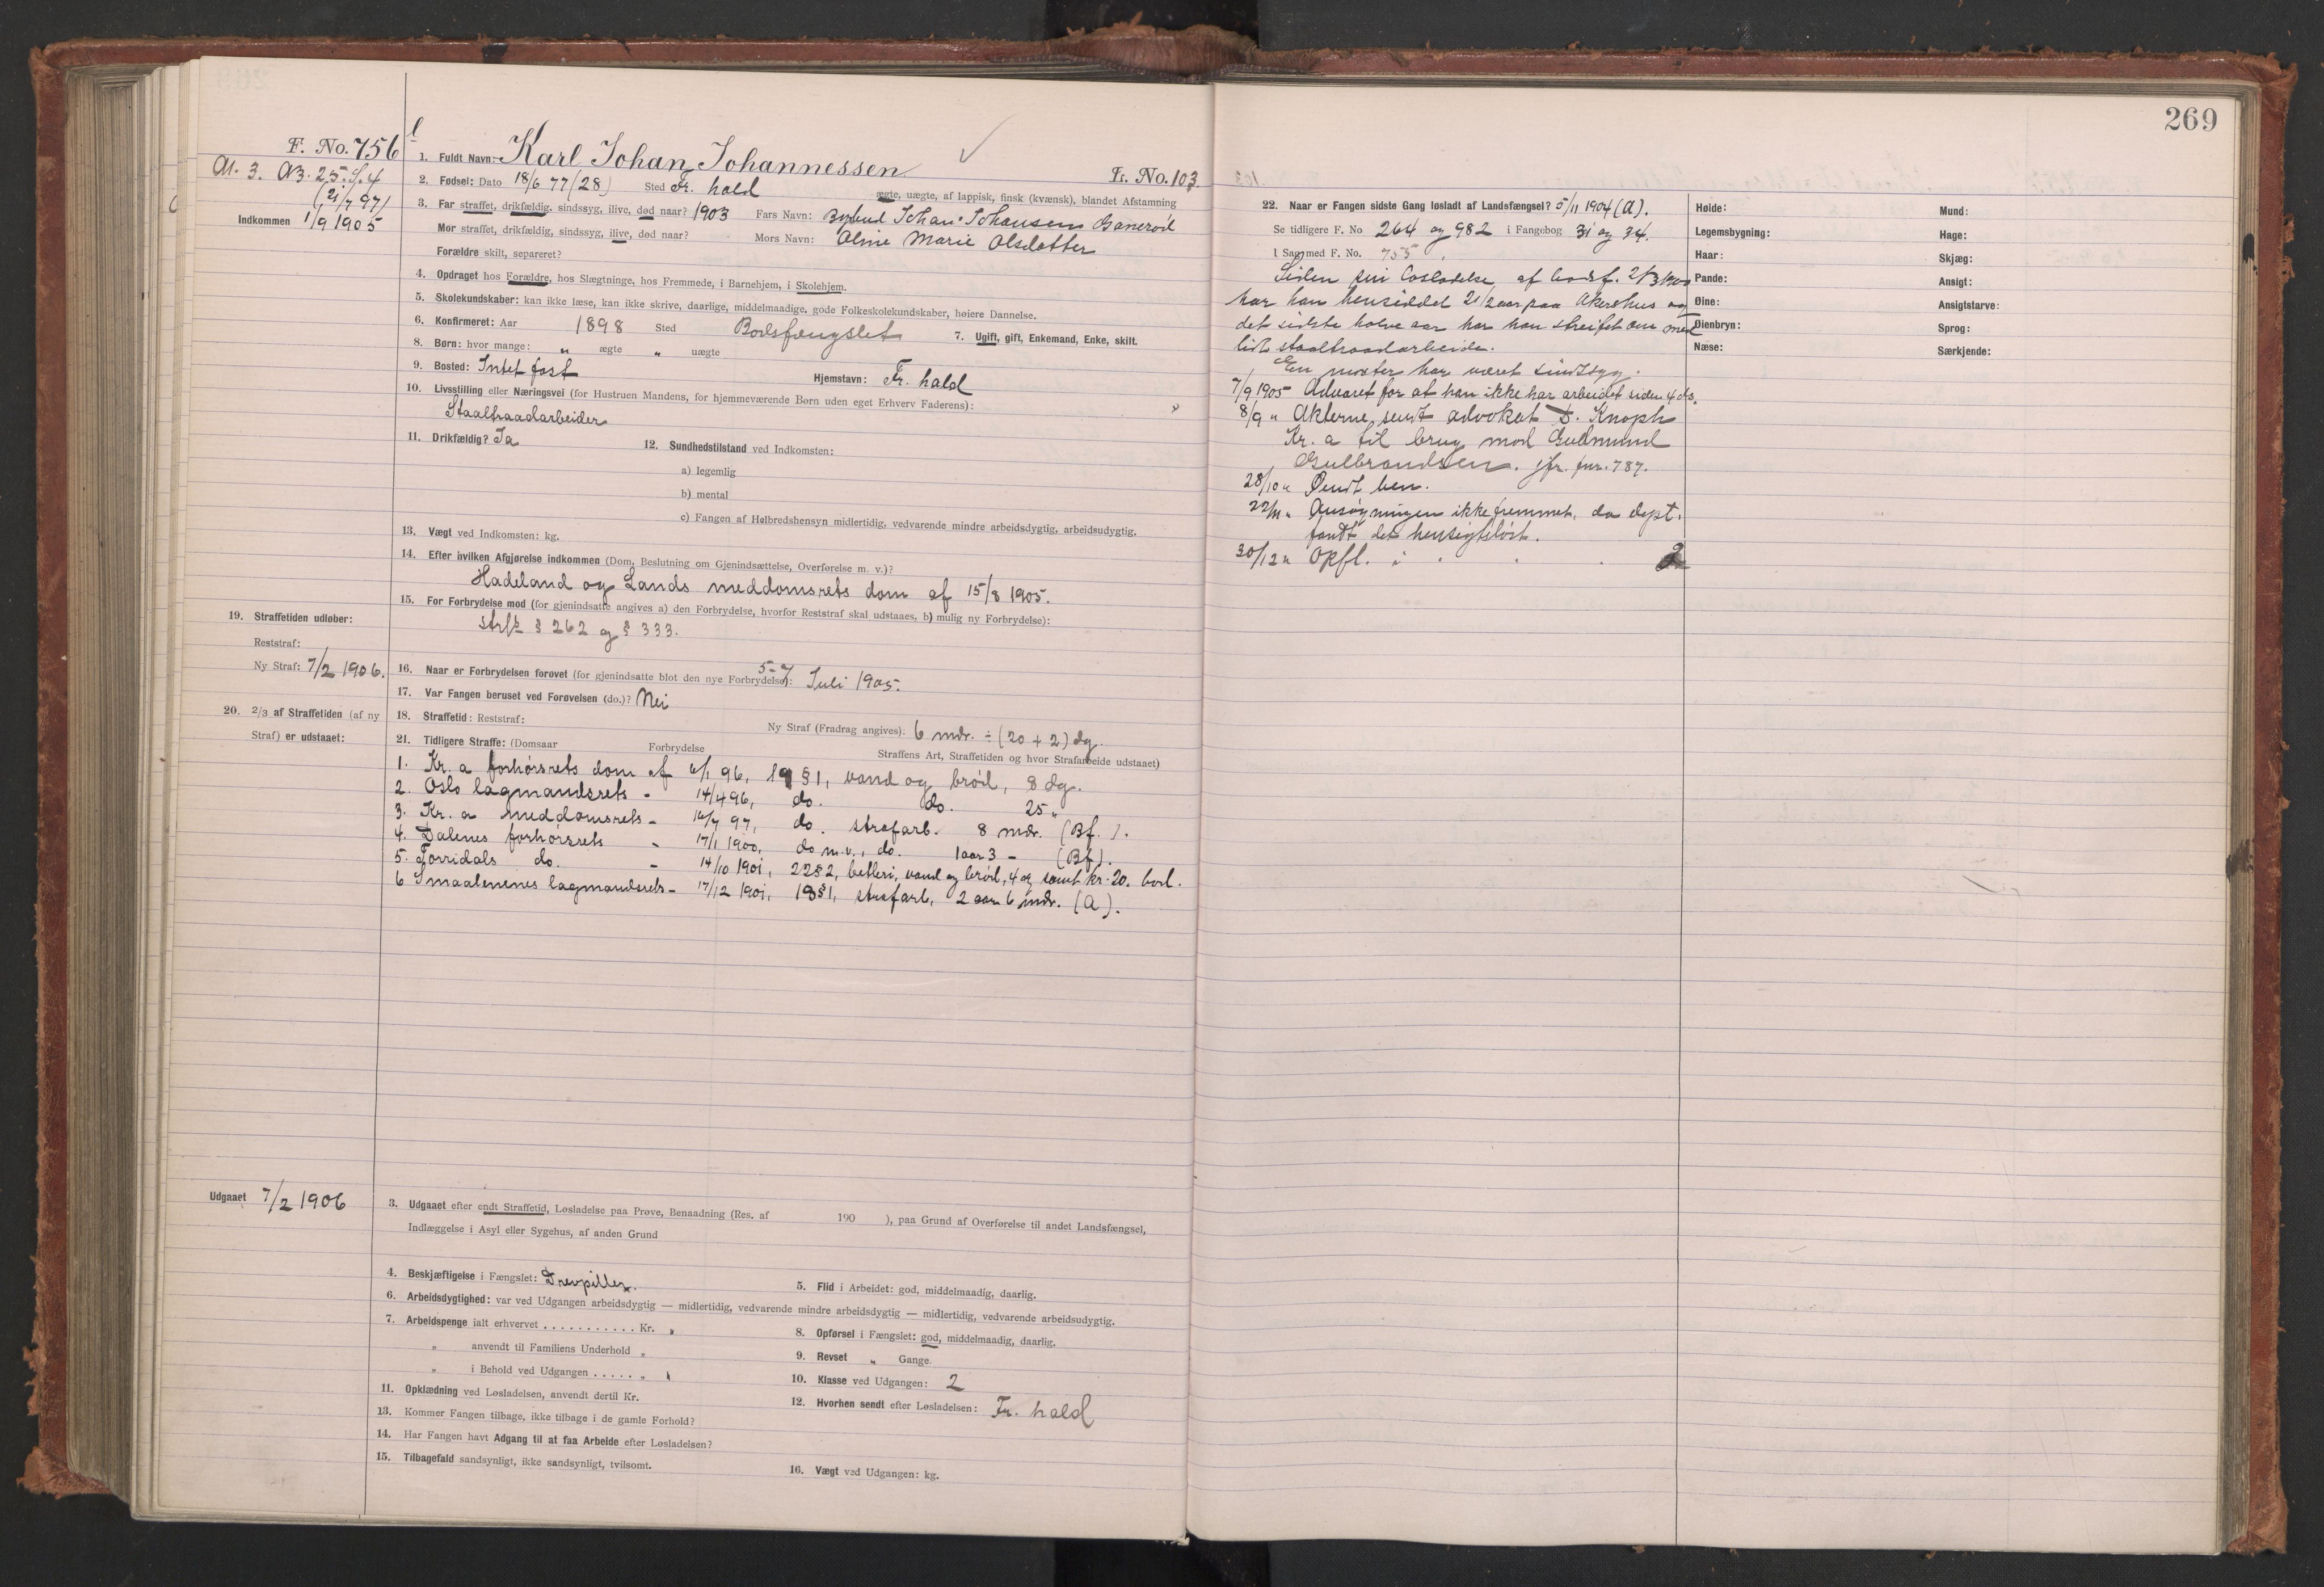 269
F. No. 756
Al. 3. N3. 25. S. 4
(21/7 97)
Indkommen 1/9 1905
1. Fuldt Navn: Karl Johan Johannessen
Fr. No. 103.
2. Fødsel: Dato 18/6 77 (28) Sted Fr. hald ægte, uægte, af lappisk, finsk (kvænsk), blandet Afstamning
3. Far straffet, drikfældig, sindssyg, ilive, død naar? 1903 Fars Navn: Johan Johansen
Mor straffet, drikfældig, sindssyg, ilive, død naar? Mors Navn: Oline Marie Olsdatter
Forældre skilt, separeret?
4. Opdraget hos Forældre, hos Slægtninge, hos Fremmede, i Barnehjem, i Skolehjem.
5. Skolekundskaber: kan ikke læse, kan ikke skrive, daarlige, middelmaadige, gode Folkeskolekundskaber, høiere Dannelse.
6. Konfirmeret: Aar 1898 Sted Bodsfængslet 7. Ugift, gift, Enkemand, Enke, skilt.
8. Børn: hvor mange: " ægte " uægte
9. Bosted: Intet fast Hjemstavn: Fr. hald
10. Livsstilling eller Næringsvei (for Hustruen Mandens, for hjemmeværende Børn uden eget Erhverv Faderens):
Staaltraadarbeider
11. Drikfældig? Ja 12. Sundhedstilstand ved Indkomsten:
a) legemlig
b) mental
c) Fangen af Helbredshensyn midlertidig, vedvarende mindre arbeidsdygtig, arbeidsudygtig.
13. Vægt ved Indkomsten: kg.
14. Efter hvilken Afgjørelse indkommen (Dom, Beslutning om Gjenindsættelse, Overførelse m. v.)?
Hadeland og Lands meddomsrets dom af 15/8 1905.
15. For Forbrydelse mod (for gjenindsatte angives a) den Forbrydelse, hvorfor Reststraf skal udstaaes, b) mulig ny Forbrydelse):
strfl. § 262 og § 333.
19. Straffetiden udløber:
Reststraf:
Ny Straf: 7/2 1906.
16. Naar er Forbrydelsen forøvet (for gjenindsatte blot den nye Forbrydelse): 5-7 Juli 1905.
17. Var Fangen beruset ved Forøvelsen (do.)? Nei
20. 2/3 af Straffetiden (af ny
Straf) er udstaaet:
18. Straffetid: Reststraf: Ny Straf (Fradrag angives): 6 mdr. ÷ (20 + 2) dg.
21. Tidligere Straffe: (Domsaar Forbrydelse Straffens Art, Straffetiden og hvor Strafarbeide udstaaet)
1. Kr. a forhørsrets dom af 6/1 96, 19 § 1, vand og brød, 8 dg.
2. Oslo lagmandsrets - 14/4 96, do. do. 25 "
3. Kr. a meddomsrets - 16/7 97, do. strafarb. 8 mdr. (Bf.).
4. Dalenes forhørsrets - 17/1 1900, do m.v., do. 1 aar 3 - (Bf).
5. Torridals do. - 14/10 1901, 22 § 2, betleri, vand og brød, 4 dg samt kr. 20. bod.
6 Smaalenenes lagmandsrets - 17/12 1901, 19 § 1, strafarb. 2 aar 6 mdr. (A).
Udgaaet 7/2 1906
3. Udgaaet efter endt Straffetid, Løsladelse paa Prøve, Benaadning (Res. af 190 ), paa Grund af Overførelse til andet Landsfængsel,
Indlæggelse i Asyl eller Sygehus, af anden Grund
4. Beskjæftigelse i Fængslet: Drevpiller. 5. Flid i Arbeidet: god, middelmaadig, daarlig.
6. Arbeidsdygtighed: var ved Udgangen arbeidsdygtig — midlertidig, vedvarende mindre arbeidsdygtig — midlertidig, vedvarende arbeidsudygtig.
7. Arbeidspenge ialt erhvervet . . . . . . . . . . . Kr. " 8. Opførsel i Fængslet: god, middelmaadig, daarlig.
" anvendt til Familiens Underhold " 9. Revset " Gange.
" i Behold ved Udgangen . . . . . " " 10. Klasse ved Udgangen: 2
11. Opklædning ved Løsladelsen, anvendt dertil Kr. 12. Hvorhen sendt efter Løsladelsen: Fr. hald
13. Kommer Fangen tilbage, ikke tilbage i de gamle Forhold?
14. Har Fangen havt Adgang til at faa Arbeide efter Løsladelsen?
15. Tilbagefald sandsynligt, ikke sandsynligt, tvilsomt. 16. Vægt ved Udgangen: kg.
22. Naar er Fangen sidste Gang løsladt af Landsfængsel? 5/11 1904 (A).
Se tidligere F. No 264 og 982 i Fangebog 31 og 34.
I Sag med F. No. 755.
Siden sin Løsladelse af bodsf. 2/3 1900
har han hensiddet 2 1/2 aar paa Akershus og
det sidste halve aar har han streifet om med
lidt staaltraadarbeide.
En moster har været sindssyg.
7/9 1905 Advaret for at han ikke har arbeidet siden 4 ds.
8/9 " Akterne sendt advokat D. Knoph
Kr. a til brug mod Gudmund
Gulbrandsen. jfr. fnr. 787.
28/10 " Sendt ben.
22/11 " Ansøgningen ikke fremmet, da dept.
fandt det hensigtsløst.
30/12 " Opfl. i 2
Høide:
Legemsbygning:
Haar:
Pande:
Øine:
Øienbryn:
Næse:
Mund:
Hage:
Skjæg:
Ansigt:
Ansigtsfarve:
Sprog:
Særkjende: